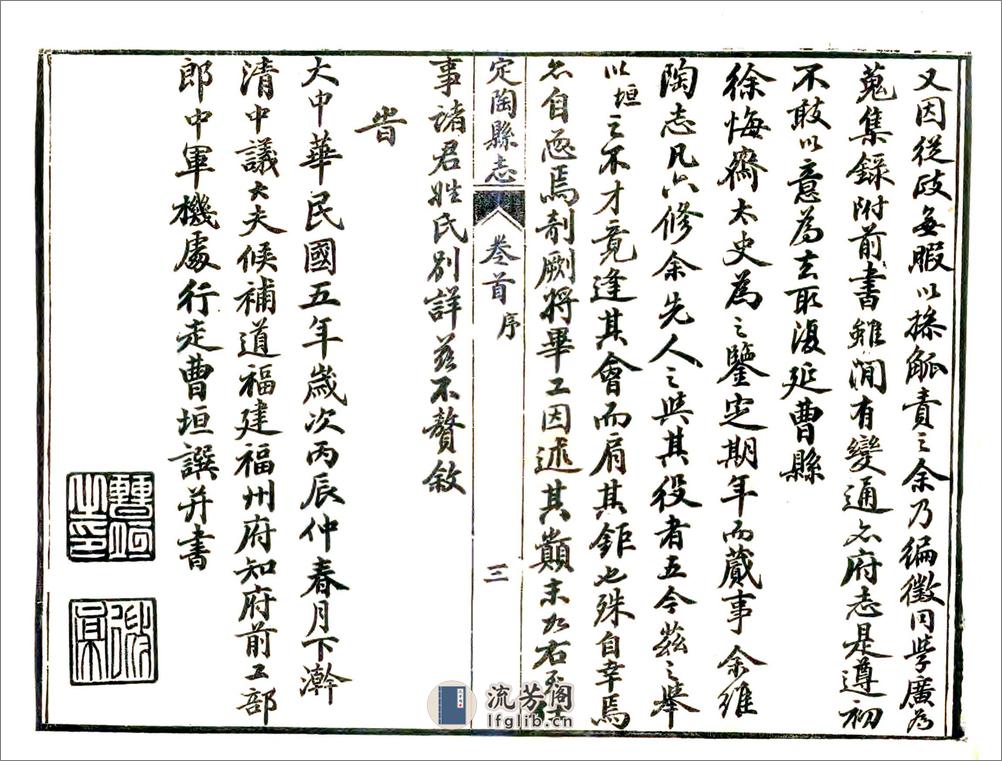 又因從政無暇以操觚責之余乃徧徵同學廣為
蒐集錄附前書雖間有變通亦府志是遵初
不敢以意為去取復延曹縣
徐悔齋太史為之鑒定期年而蕆事余維
陶志凡六修余先人之與其役者五今茲之舉
以垣之不才竟逢其會而肩其鉅也殊自幸焉
亦自恧焉剞劂將畢工因述其顛末如右至任
定陶縣志 卷首 序 三
事諸君姓氏別詳茲不贅敘
旹
大中華民國五年歲次丙辰仲春月下澣
清中議大夫候補道福建福州府知府前工部
郎中軍機處行走曹垣譔并書
曹垣之印
流芳阁
lfglib.cn